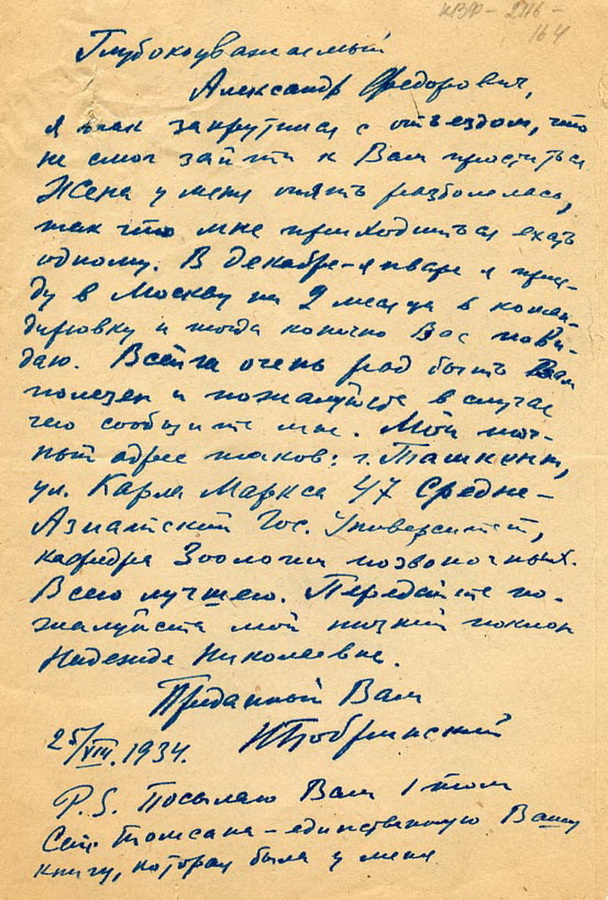 КВФ-2116-
164
Глубокоуважаемый
Александр Федорович,
я так закрутился с отъездом, что
не смог зайти к Вам проститься
Жена у меня опять разболелась,
так что мне приходиться ехать
одному. В декабре-январе я прие-
ду в Москву на 2 месяца в коман-
дировку и тогда конечно Вас пови-
даю. Всегда очень рад быть Вам
полезен и пожалуйста в случае
чего сообщите мне. Мой точ-
ный адрес таков: г. Ташкент,
ул. Карла Маркса 47 Средне-
Азиатский Гос. Университет,
кафедра Зоологии позвоночных.
Всего лучшего. Передайте по-
жалуйста мой низкий поклон
Надежде Николаевне.
Преданный Вам
НБобринский
25/VIII.1934.
P.S. Посылаю Вам 1 том
Сет. Томсана - единственную Вашу
книгу, которая была у меня